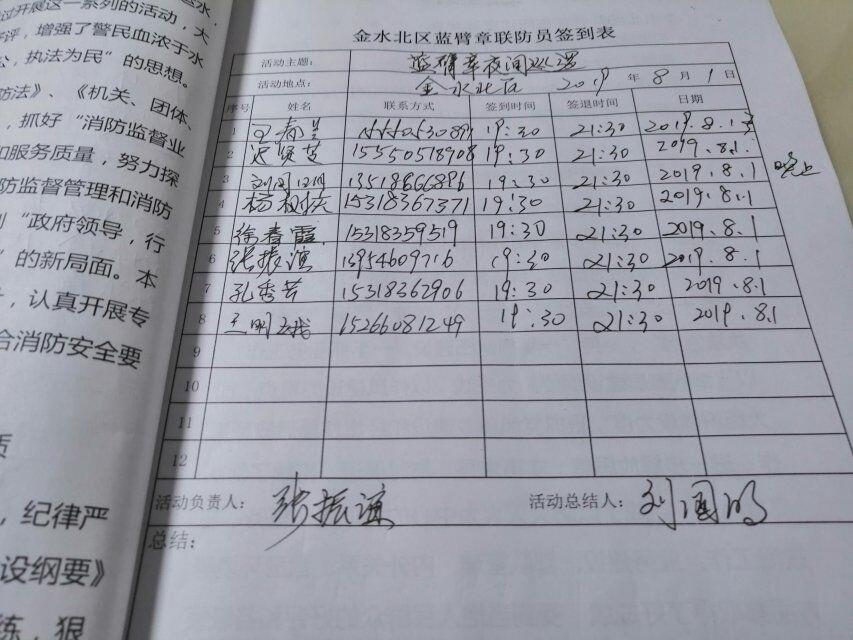 过开展这一系列的活动，大
评，增强了警民血浓于水
公，执法为民”的思想。
防法》、《机关、团体、
，抓好“消防监督业
和服务质量，努力探
防监督管理和消防
“政府领导，行
”的新局面。本
，认真开展专
合消防安全要
质
，纪律严
设纲要》
练，狠
金水北区蓝臂章联防员签到表
活动主题： 蓝臂章夜间巡逻
活动地点： 金水北区 2019 年 8 月 1 日
序号 姓名 联系方式 签到时间 签退时间 日期
1 19:30 21:30 2019.8.1
2 15550518908 19:30 21:30 2019.8.1
3 刘国明 13518866896 19:30 21:30 2019.8.1 晚上
4 15318367371 19:30 21:30 2019.8.1
5 徐春霞 15318359519 19:30 21:30 2019.8.1
6 张振谊 13954609716 19:30 21:30 2019.8.1
7 孔秀芳 15318362906 19:30 21:30 2019.8.1
8 王明 15266081249 19:30 21:30 2019.8.1
9
10
11
12
活动负责人： 张振谊 活动总结人： 刘国明
总结：